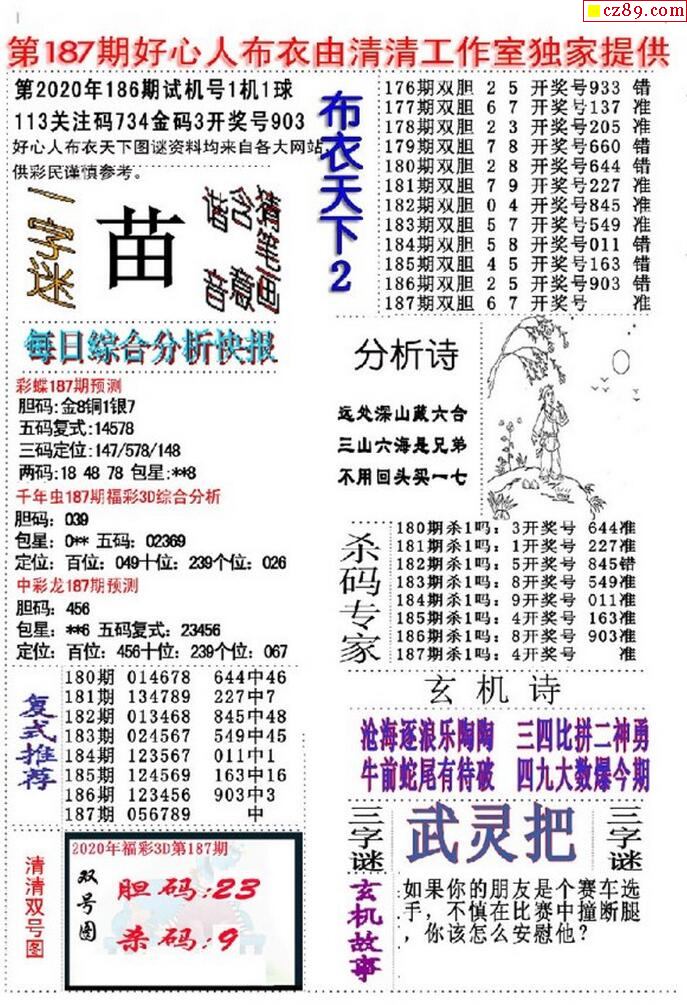 cz89.com
第187期好心人布衣由清清工作室独家提供
第2020年186期试机号1机1球
113关注码734金码3开奖号903
好心人布衣天下图谜资料均来自各大网站,
供彩民谨慎参考。
一字迷
苗
猜笔画
含意
谐音
每日综合分析快报
彩蝶187期预测
胆码:金8铜1银7
五码复式:14578
三码定位:147/578/148
两码:18 48 78 包星:**8
千年虫187期福彩3D综合分析
胆码: 039
包星: 0** 五码: 02369
定位: 百位: 049十位: 239个位: 026
中彩龙187期预测
胆码: 456
包星: **6 五码复式: 23456
定位: 百位: 456十位: 239个位: 067
复式推荐
180期 014678 644中46
181期 134789 227中7
182期 013468 845中48
183期 024567 549中45
184期 123567 011中1
185期 124569 163中16
186期 123456 903中3
187期 056789 中
清清双号图
2020年福彩3D第187期
双号图
胆码:23
杀码:9
布衣天下2
176期双胆 2 5 开奖号933 错
177期双胆 6 7 开奖号137 准
178期双胆 2 3 开奖号205 准
179期双胆 7 8 开奖号660 错
180期双胆 2 8 开奖号644 错
181期双胆 7 9 开奖号227 准
182期双胆 0 4 开奖号845 准
183期双胆 5 7 开奖号549 准
184期双胆 5 8 开奖号011 错
185期双胆 4 5 开奖号163 错
186期双胆 2 5 开奖号903 错
187期双胆 6 7 开奖号 准
分析诗
远处深山藏六合
三山六海是兄弟
不用回头买一七
杀码专家
180期杀1吗: 3开奖号 644准
181期杀1吗: 1开奖号 227准
182期杀1吗: 5开奖号 845错
183期杀1吗: 8开奖号 549准
184期杀1吗: 9开奖号 011准
185期杀1吗: 4开奖号 163准
186期杀1吗: 8开奖号 903准
187期杀1吗: 4开奖号 准
玄机诗
沧海逐浪乐陶陶 三四比拼二神勇
牛前蛇尾有待破 四九大数爆今期
三字谜
武灵把
三字谜
玄机故事
如果你的朋友是个赛车选
手, 不慎在比赛中撞断腿
, 你该怎么安慰他?